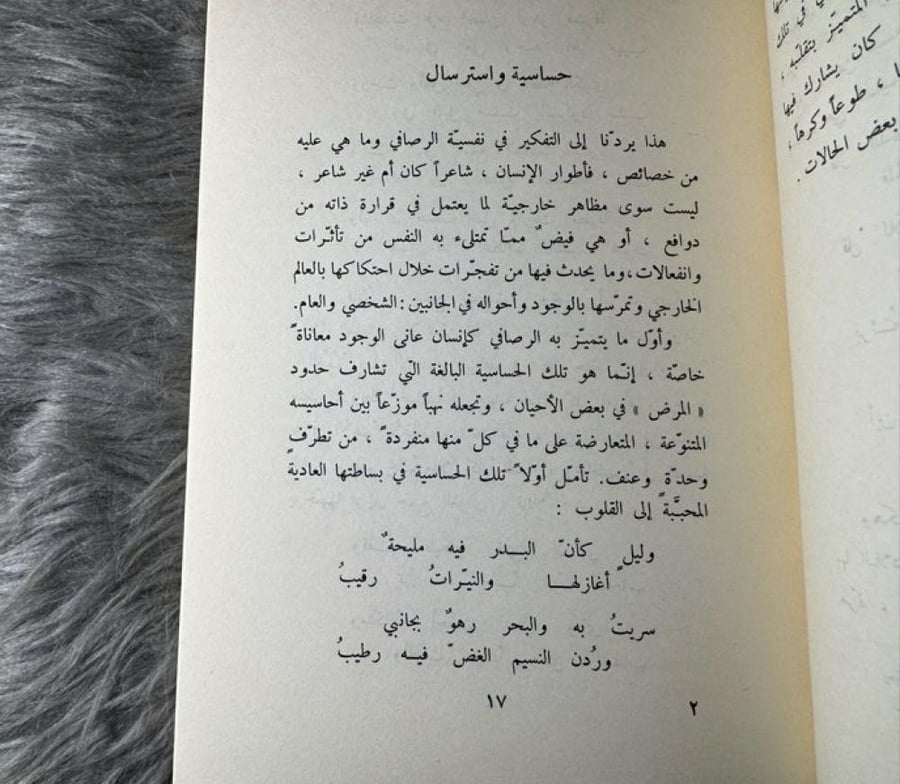 حساسية واسترسال
هذا يردّنا إلى التفكير في نفسيّة الرصافي وما هي عليه
من خصائص ، فأطوار الإنسان ، شاعراً كان أم غير شاعر ،
ليست سوى مظاهر خارجيّة لما يعتمل في قرارة ذاته من
دوافع ، أو هي فيضٌ ممّا تمتلىء به النفس من تأثّرات
وانفعالات، وما يحدث فيها من تفجرات خلال احتكاكها بالعالم
الخارجي وتمرّسها بالوجود وأحواله في الجانبين : الشخصي والعام.
وأوّل ما يتميّز به الرصافي كإنسان عانى الوجود معاناةً
خاصّة ، إنّما هو تلك الحساسية البالغة التّي تشارف حدود
« المرض » في بعض الأحيان ، وتجعله نهباً موزّعاً بين أحاسيسه
المتنوّعة ، المتعارضة على ما في كلّ منها منفردةً ، من تطرّفٍ
وحدّة وعنف. تأمّل أوّلاً تلك الحساسية في بساطتها العاديةِ
المحبَّبةً إلى القلوب :
وليلٍ كأنّ البـــدر فيه مليحةٌ
أغازلهـــا والنيّراتُ رقيبُ
سريتُ به والبحر رهوٌ بجانبي
ورُدن النسيم الغضّ فيـــه رطيبُ
١٧
٢
في تلك
المتميّز بتقلّبه ،
كان يشارك فيها
، طوعاً وكرهاً ،
بعض الحالات .